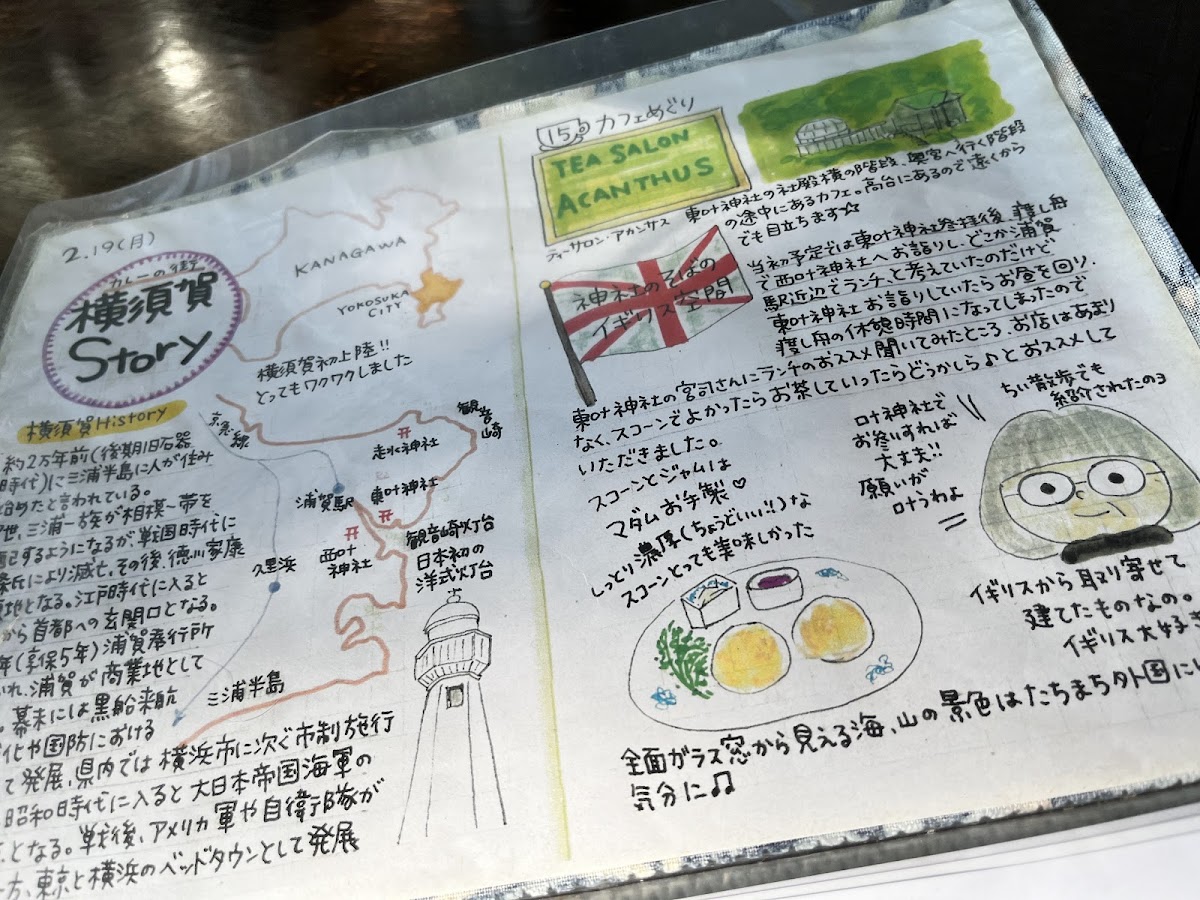 2.19(月)
カレーの街
横須賀
Story
KANAGAWA
YOKOSUKA
CITY
横須賀初上陸!!
とってもワクワクしました
横須賀History
約2万年前(後期旧石器
時代)に三浦半島に人が住み
始めたと言われている。
世、三浦一族が相模一帯を
配するようになるが、戦国時代に
条氏により滅亡、その後、徳川家康
地となる。江戸時代に入ると
から首都への玄関口となる。
年(享保5年)浦賀奉行所
かれ、浦賀が商業地として
。幕末には黒船来航
化や国防における
て発展、県内では横浜市に次ぐ市制施行
。昭和時代に入ると大日本帝国海軍の
となる。戦後、アメリカ軍や自衛隊が
方、東京と横浜のベッドタウンとして発展
京急線
観音崎
走水神社
浦賀駅
東叶神社
西叶
神社
久里浜
三浦半島
観音崎灯台
日本初の
洋式灯台
15 カフェめぐり
TEA SALON
ACANTHUS
ティーサロン・アカンサス
東叶神社の社殿横の階段、奥宮へ行く階段
の途中にあるカフェ。高台にあるので遠くから
でも目立ちます☆
神社のそばの
イギリス空間
当初予定では東叶神社参拝後、渡し舟
で西叶神社へお詣りし、どこか浦賀
駅近辺でランチ、と考えていたのだけど
東叶神社お詣りしていたらお昼を回り、
渡し舟の休憩時間になってしまったので
東叶神社の宮司さんにランチのオススメ聞いてみたところ お店はあまり
なく、スコーンでよかったらお茶していったらどうかしら♪とおススメして
いただきました。
スコーンとジャムは
マダムお手製♡
しっとり濃厚(ちょうどいい!!)な
スコーンとっても美味しかった
叶神社で
お参いすれば
大丈夫!!
願いが
叶うわよ
ちい散歩でも
紹介されたのヨ
イギリスから取り寄せて
建てたものなの。
イギリス大好き
全面ガラス窓から見える海、山の景色はたちまち外国に
気分に♫